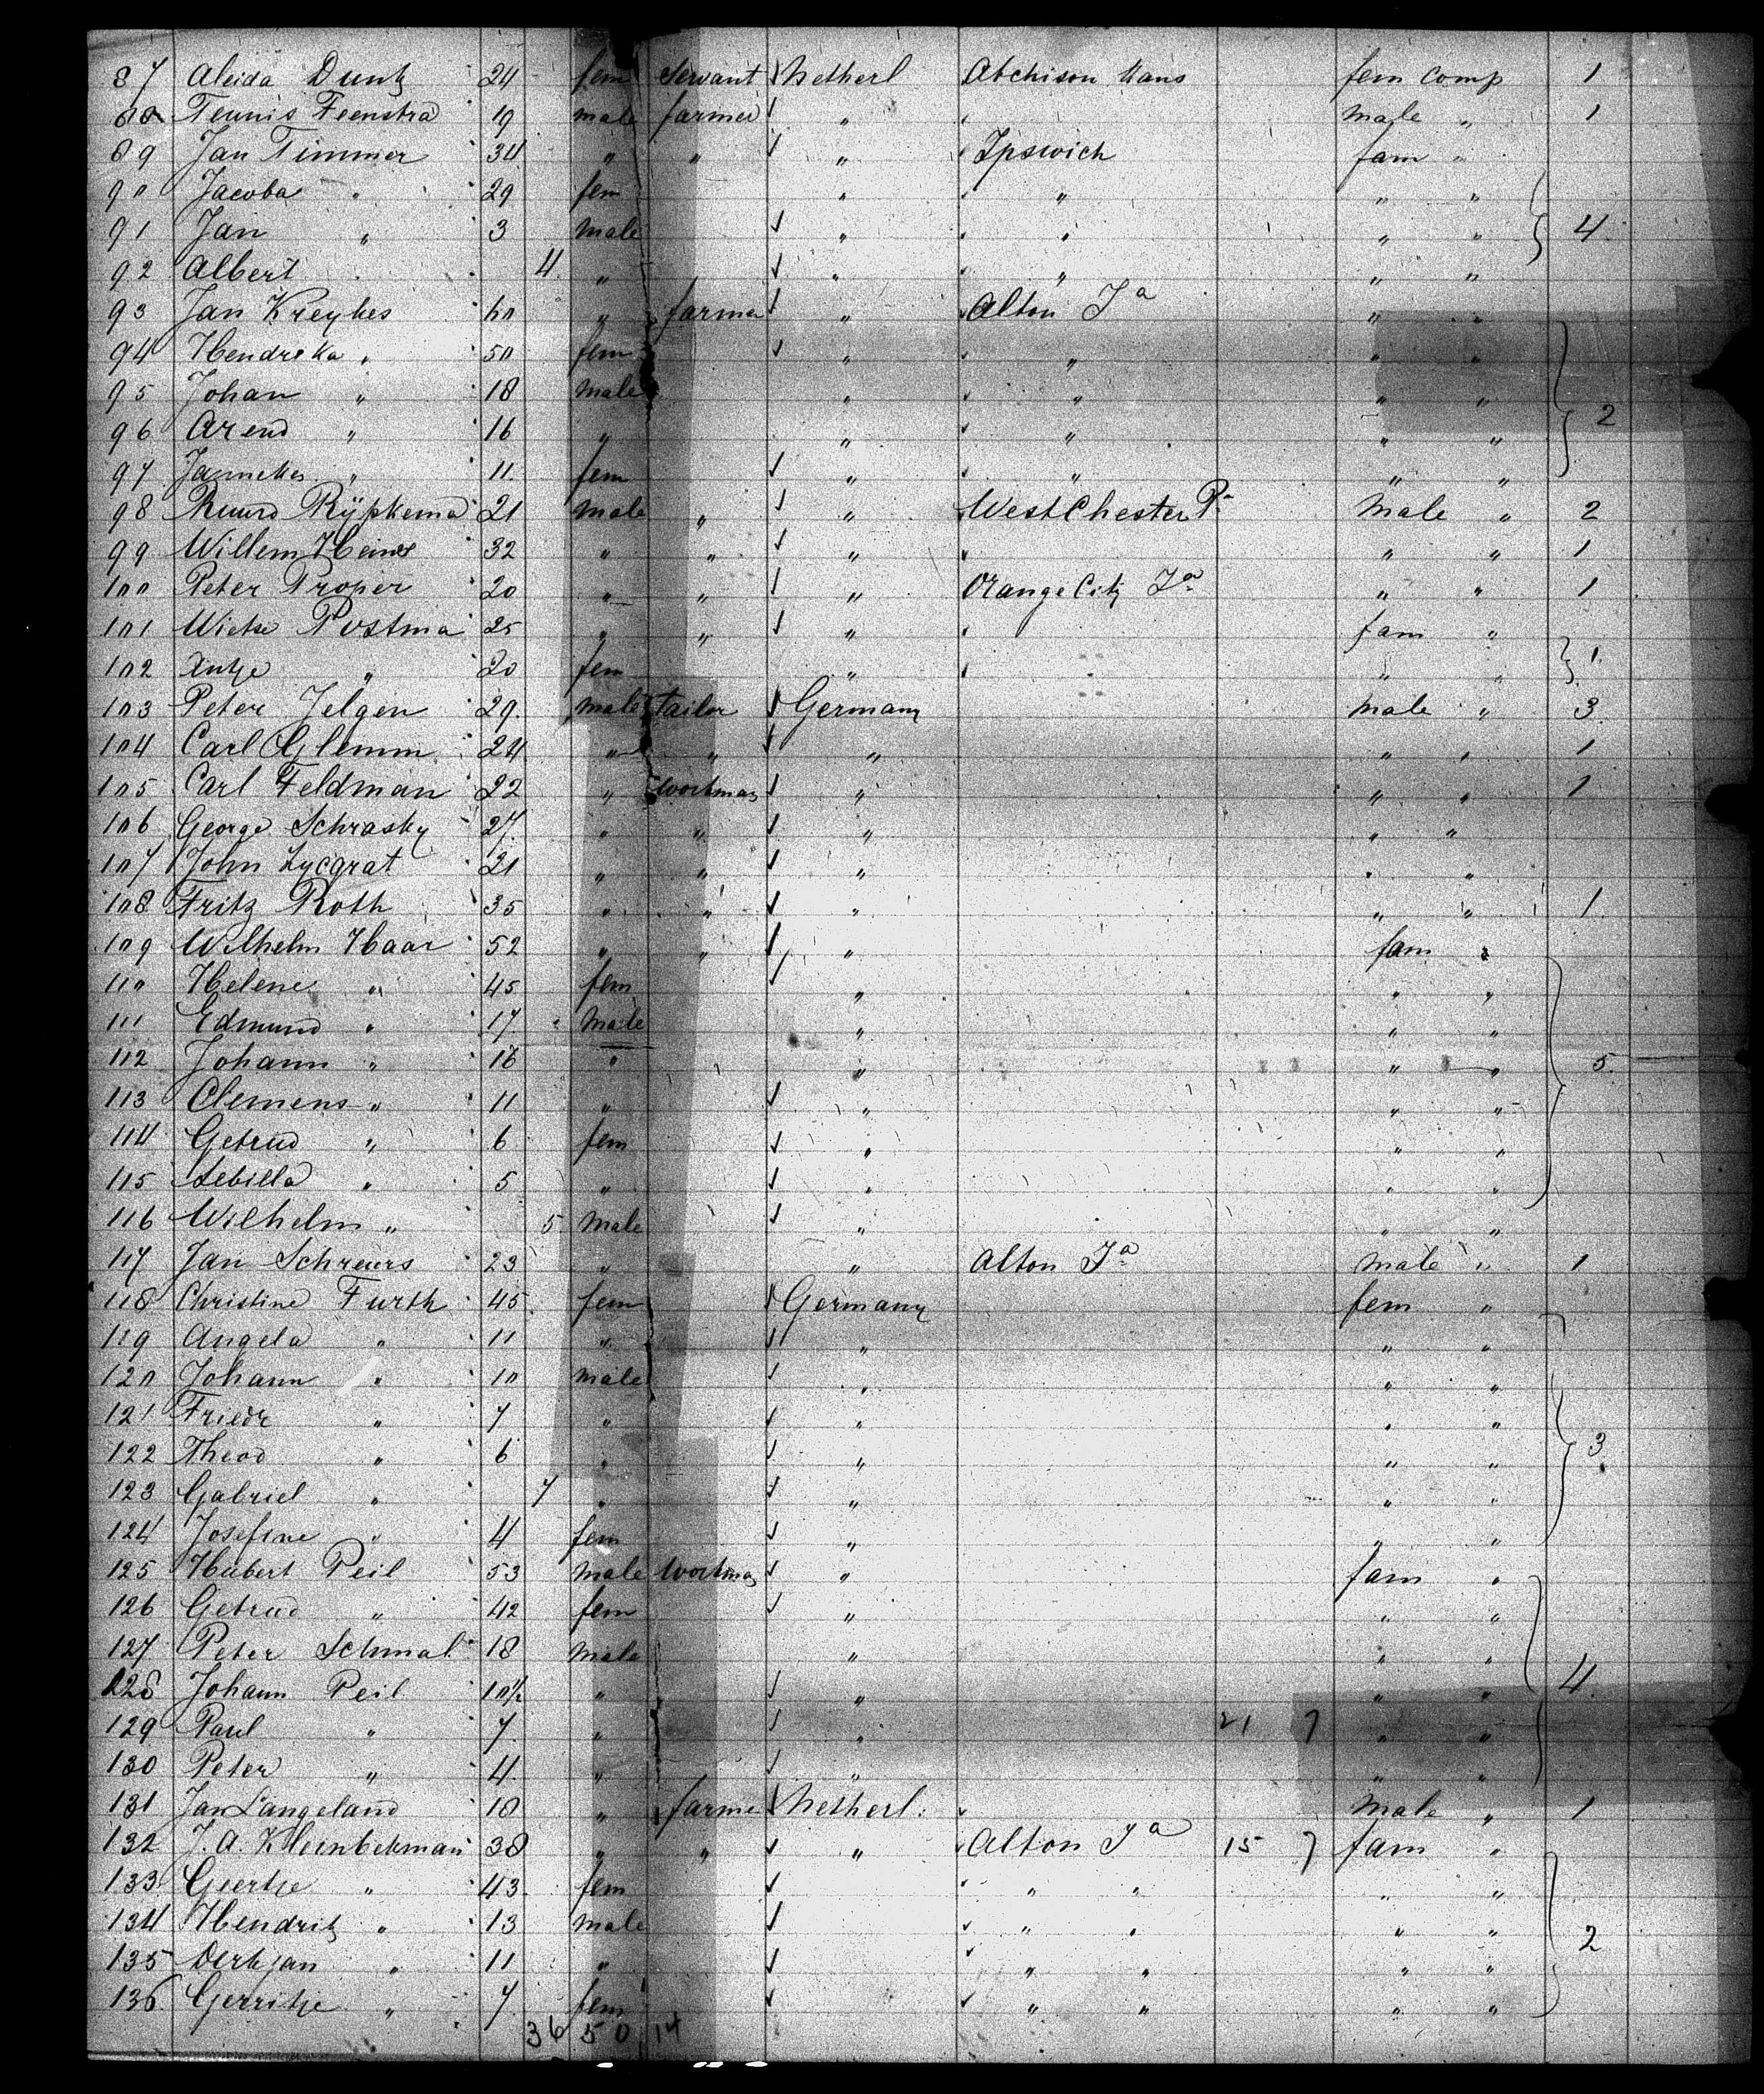 87 Aleida Duntz 24 fem Servant Netherl Atchison Kans fem comp 1
88 Teunis Feenstra 19 male farmer " " male " 1
89 Jan Timmer 34 " " " Ipswich fam "
90 Jacoba " 29 fem " " " "
91 Jan " 3 male " " " " 4
92 Albert " 4 " " " " "
93 Jan Kreykes 60 " farmer " Alton Ia " "
94 Hendreka " 50 fem " " " "
95 Johan " 18 male " " " "
96 Arend " 16 " " " " " 2
97 Janneke " 11 fem " " " "
98 Ruurd Rÿpkema 21 male " " West Chester Pa male " 2
99 Willem Heines 32 " " " " " 1
100 Peter Troper 20 " " " Orange City Ia " " 1
101 Wietse Postma 25 " " " fam "
102 Antje " 20 fem " " " 1
103 Peter Jelgen 29 male tailor Germany male " 3
104 Carl Glemm 24 " " " " " 1
105 Carl Feldman 22 " workman " " " 1
106 George Schrasky 27 " " " " "
107 John Lycgrat 21 " " " " "
108 Fritz Roth 35 " " " " " 1
109 Wilhelm Haar 52 " " " fam "
110 Helene " 45 fem " " "
111 Edmund " 17 male " " "
112 Johann " 16 " " " " 5
113 Clemens " 11 " " " "
114 Getrud " 6 fem " " "
115 Sebilla " 5 " " " "
116 Wilhelm " 5 male " " "
117 Jan Schreurs 23 " " Alton Ia male " 1
118 Christine Furth 45 fem Germany fem "
119 Angela " 11 " " " "
120 Johann " 10 male " " "
121 Friedr " 7 " " " "
122 Theod " 6 " " " " 3
123 Gabriel " 7 " " " "
124 Josefine " 4 fem " " "
125 Hubert Peil 53 male workman " fam "
126 Getrud " 42 fem " " "
127 Peter Schmal 18 male " " "
128 Johann Peil 10½ " " " " 4
129 Paul " 7 " " 21 7 " "
130 Peter " 4 " " " "
131 Jan Langeland 18 " farme Netherl. male " 1
132 J. A. Kleinbekman 38 " " " Alton Ia 15 7 fam "
133 Geertje " 43 fem " " " "
134 Hendrik " 13 male " " " " 2
135 Derkjan " 11 " " " " "
136 Gerritje " 7 fem " " " "
36 50 14